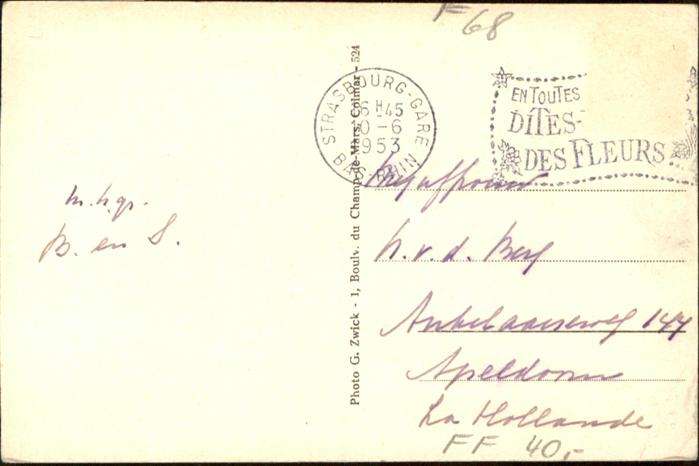 F 68
STRASBOURG-GARE
16 H 45
10-6
1953
BAS-RHIN
EN TOUTES
DITES-
DES FLEURS
Photo G. Zwick - 1, Boulv. du Champ-de-Mars, Colmar - 524
m.h.gr.
B. en S.
Mejuffrouw
v.d. Berg
Arnhemseweg 144
Apeldoorn
La Hollande
FF 40,-